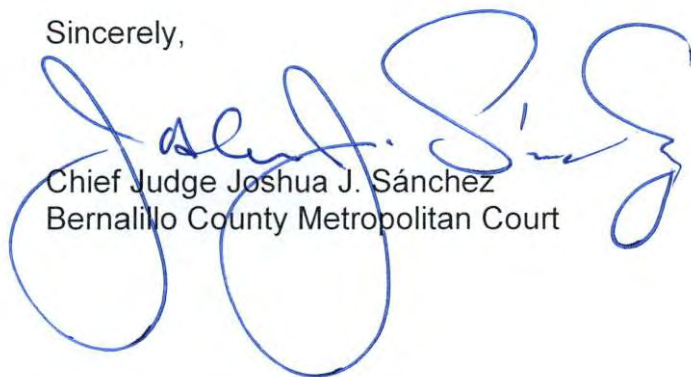 Sincerely,
Joshua J. Sánchez
Chief Judge Joshua J. Sánchez
Bernalillo County Metropolitan Court